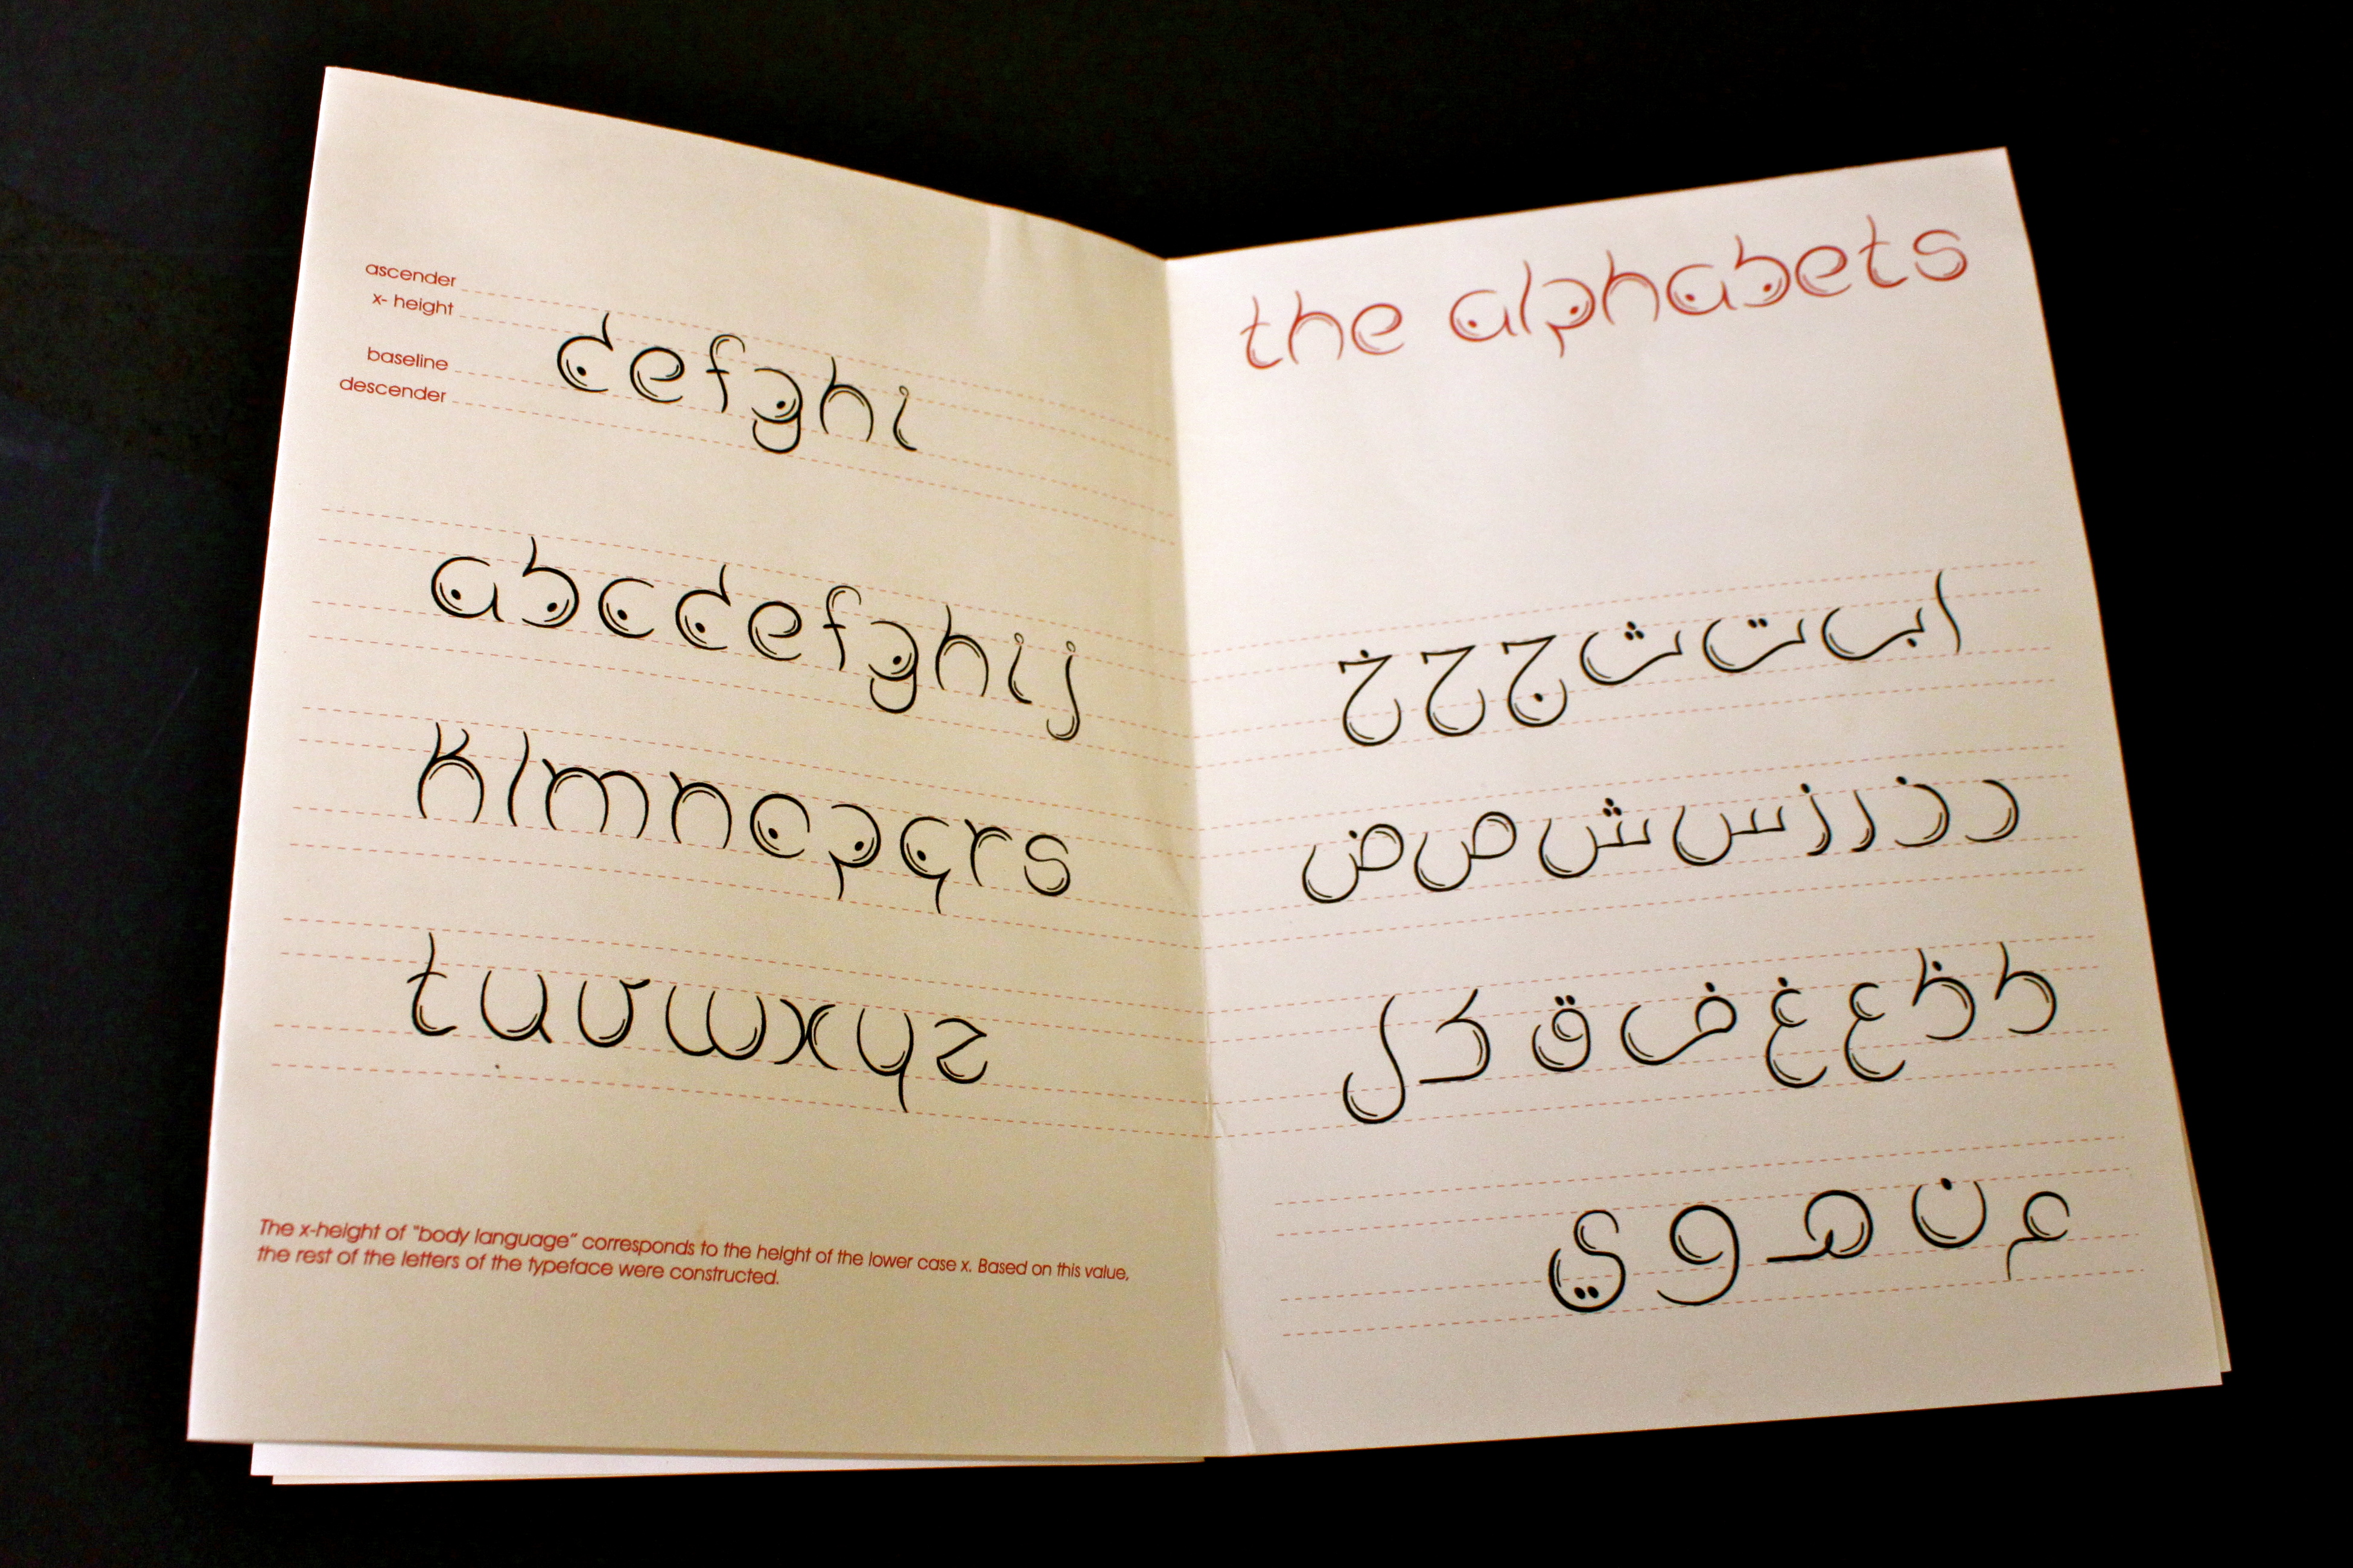 ascender
x- height
baseline
descender
defghi
abcdefghij
klmnopqrs
tuvwxyz
The x-height of "body language" corresponds to the height of the lower case x. Based on this value,
the rest of the letters of the typeface were constructed.
the alphabets
ا ب ت ث ج ح خ
د ذ ر ز س ش ص ض
ط ظ ع غ ف ق ك ل
م ن ه و ي